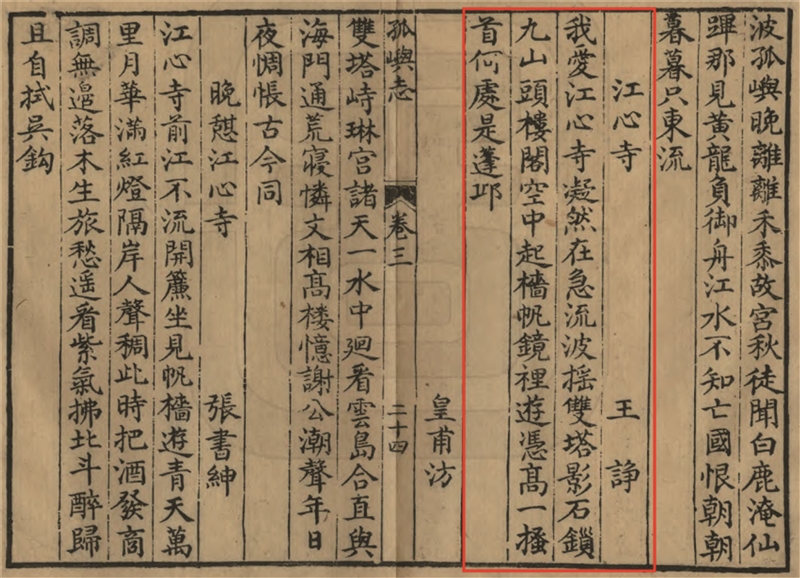 波孤嶼晚離離禾黍故宮秋徒聞白鹿淹仙
蹕那見黃龍負御舟江水不知亡國恨朝朝
暮暮只東流
江心寺 王諍
我愛江心寺凝然在急流波搖雙塔影石鎖
九山頭樓閣空中起檣帆鏡裡遊憑高一搔
首何處是蓬邱
皇甫汸
孤嶼志 卷三 二十四
雙塔峙琳宮諸天一水中廻看雲島合直與
海門通荒寢憐文相髙楼憶謝公潮聲年日
夜惆悵古今同
晚憇江心寺 張書紳
江心寺前江不流開簾坐見帆檣遊青天萬
里月華滿紅燈隔岸人聲稠此時把酒發商
調無邉落木生旅愁遥看紫氣拂北斗醉歸
且自拭吳鈎